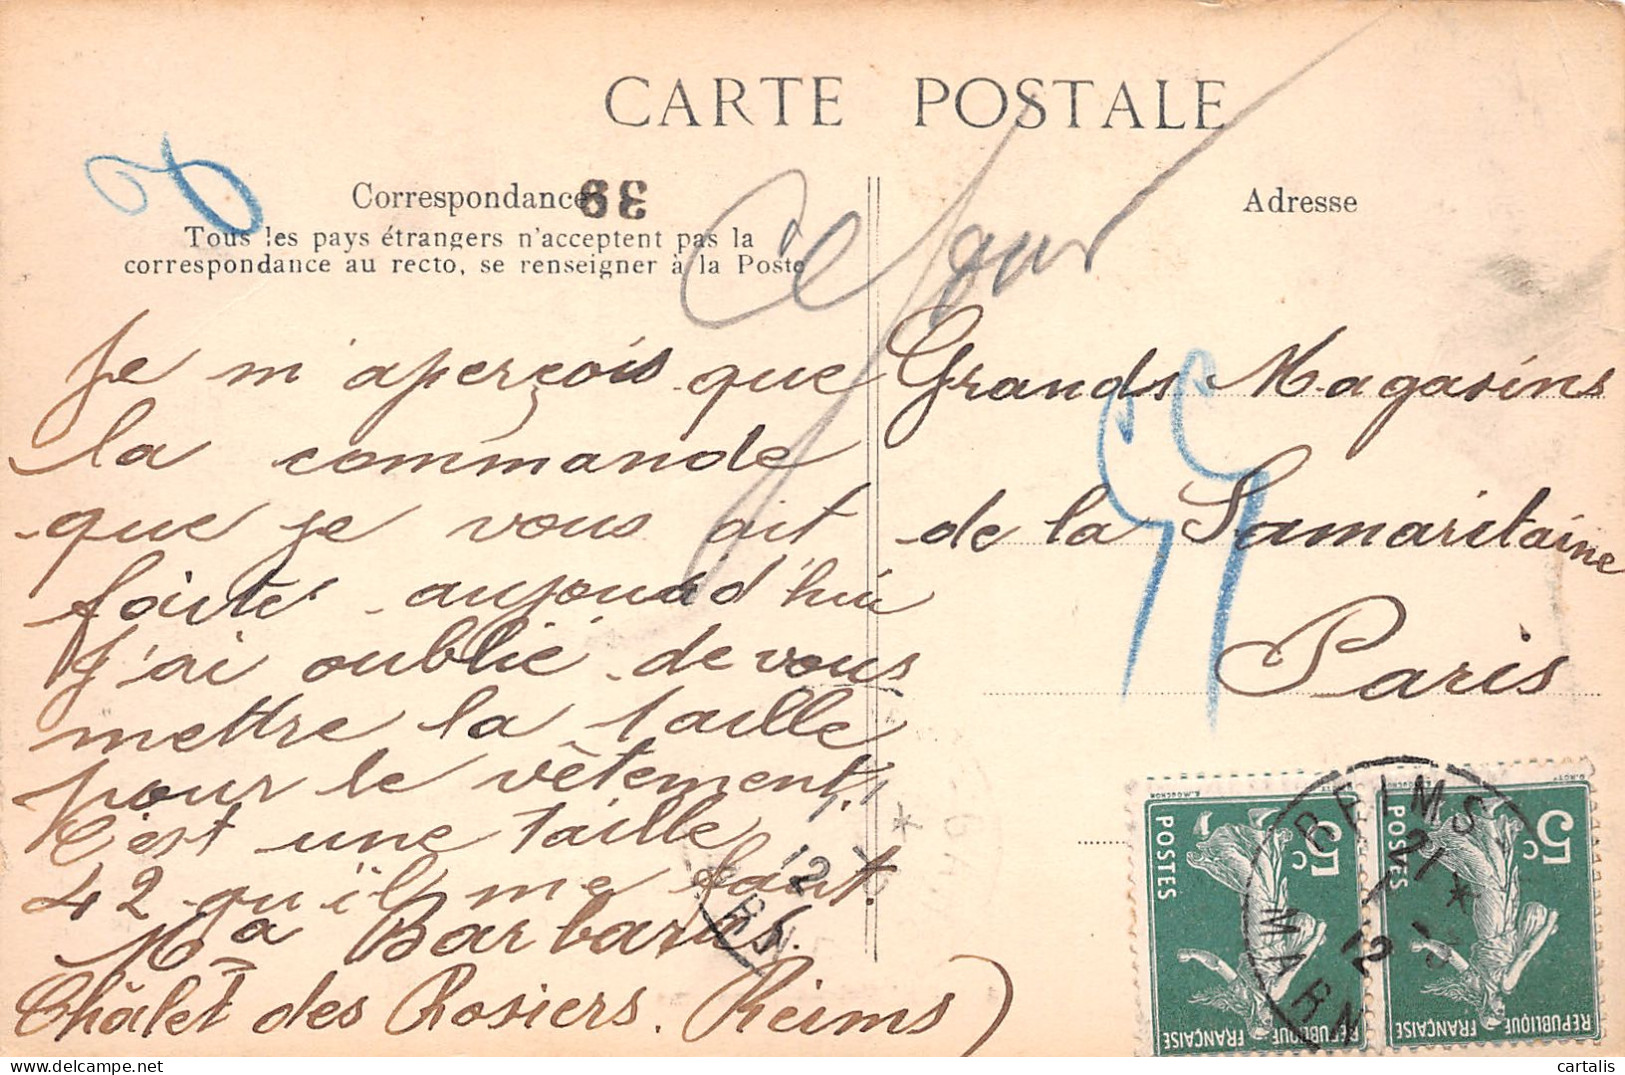 CARTE POSTALE
Correspondance
39
Tous les pays étrangers n'acceptent pas la
correspondance au recto, se renseigner à la Poste
Je m'aperçois que
la commande
que je vous ait
faite aujourd'hui
J'ai oublié de vous
mettre la taille
pour le vêtement,
C'est une taille
42 qu'il me faut.
Barbaras.
Châlet des Rosiers. Reims)
Adresse
Grands Magasins
de la Samaritaine
Paris
55
REIMS
21
12
MARNE
5c
POSTES
REPUBLIQUE FRANÇAISE
5c
POSTES
REPUBLIQUE FRANÇAISE
cartalis